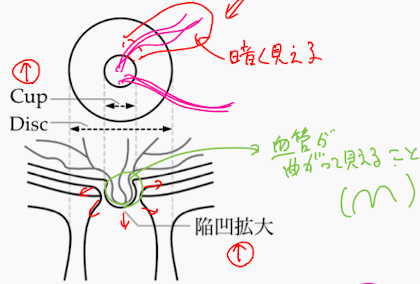 暗く見える
↑
Cup
Disc
血管が
曲がって見えること
陥凹拡大
↑